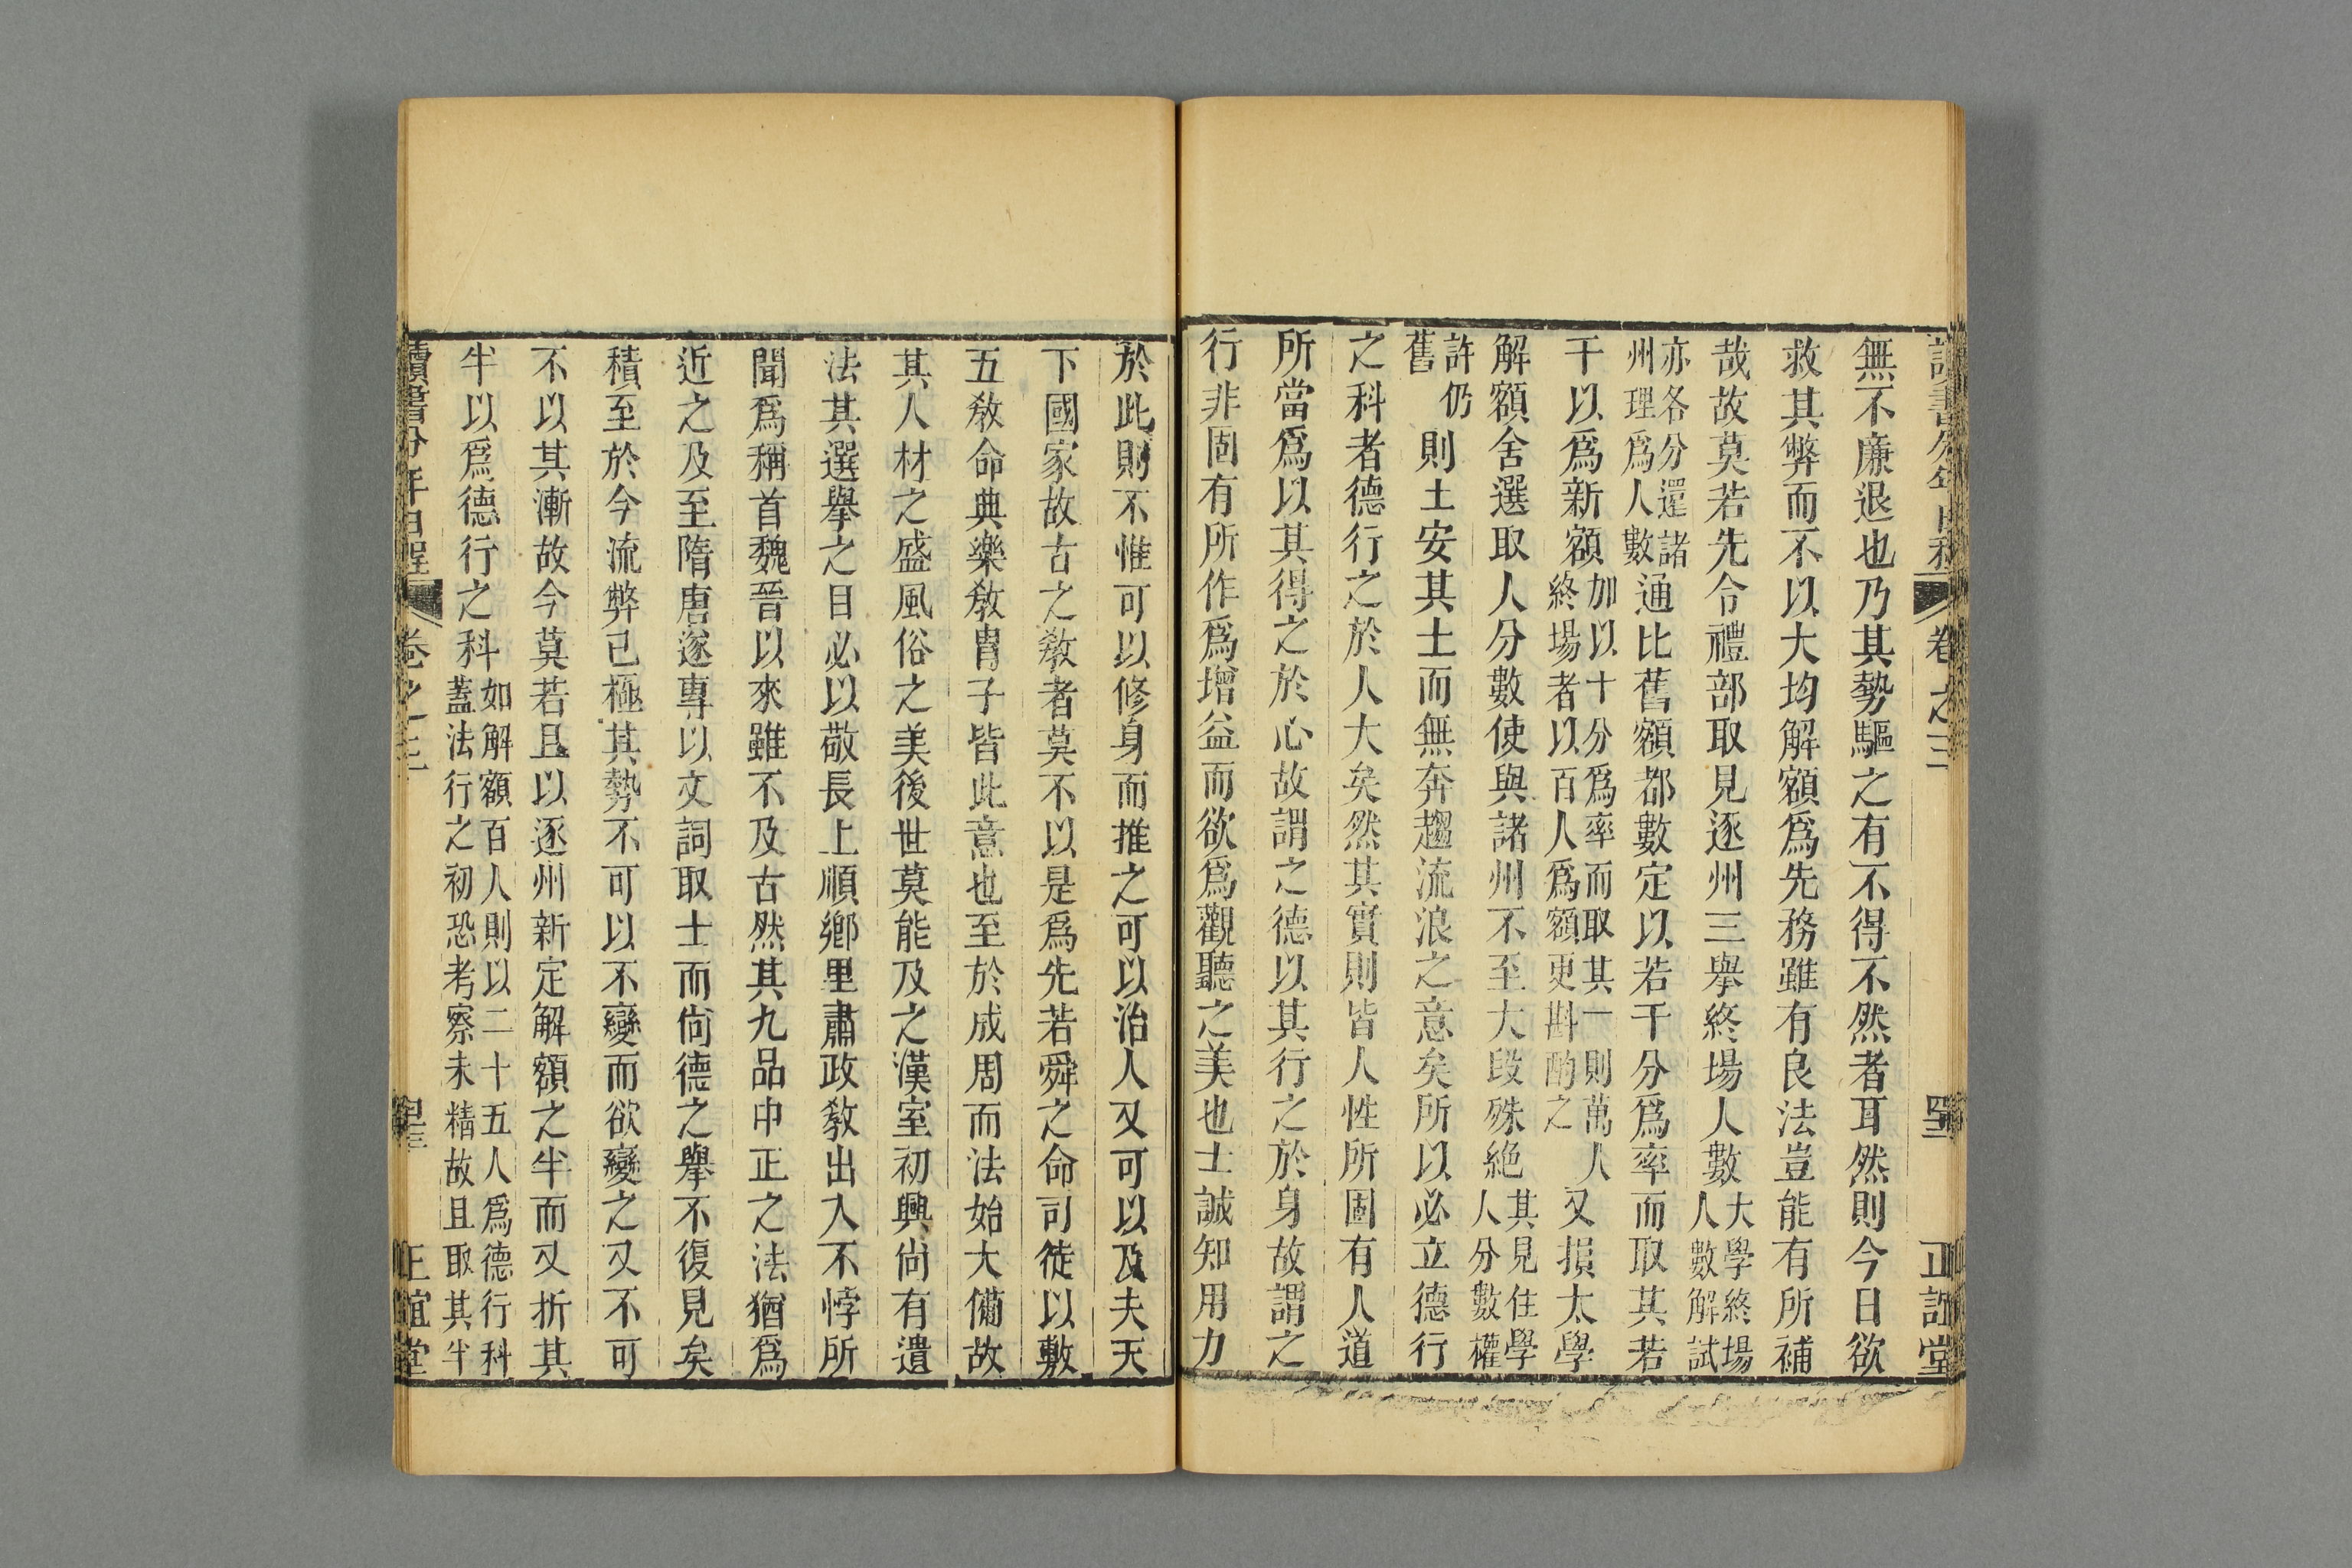 卷之三
正誼堂
無不廉退也乃其勢驅之有不得不然者耳然則今日欲
救其弊而不以大均解額爲先務雖有良法豈能有所補
哉故莫若先令禮部取見逐州三舉終場人數大學終場人數解試
亦各分還諸州理爲人數通比舊額都數定以若干分爲率而取其若
干以爲新額加以十分爲率而取其一則萬人終場者以百人爲額更斟酌之又損太學
解額舍選取人分數使與諸州不至大段殊絶其見住學人分數權
許仍舊則士安其土而無奔趨流浪之意矣所以必立德行
之科者德行之於人大矣然其實則皆人性所固有人道
所當爲以其得之於心故謂之德以其行之於身故謂之
行非固有所作爲增益而欲爲觀聽之美也士誠知用力
於此則不惟可以修身而推之可以治人又可以及夫天
下國家故古之敎者莫不以是爲先若舜之命司徒以敷
五敎命典樂敎胄子皆此意也至於成周而法始大備故
其人材之盛風俗之美後世莫能及之漢室初興尙有遺
法其選擧之目必以敬長上順鄉里肅政敎出入不悖所
聞爲稱首魏晉以來雖不及古然其九品中正之法猶爲
近之及至隋唐遂專以文詞取士而尙德之擧不復見矣
積至於今流弊已極其勢不可以不變而欲變之又不可
不以其漸故今莫若且以逐州新定解額之半而又折其
半以爲德行之科如解額百人則以二十五人爲德行科蓋法行之初恐考察未精故且取其半
讀書分年日程
卷之三
正誼堂